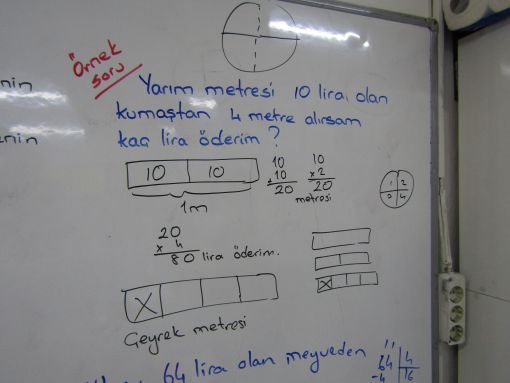 nin
Örnek
soru
Yarım metresi 10 lira olan
kumaştan 4 metre alırsam
kaç lira öderim ?
enin
10 10
1m
10
+ 10
20
10
x 2
20
metresi
1 2
3 4
20
x 4
80 lira öderim.
X
X
Çeyrek metresi
64 lira olan meyveden
64 4
-4 16